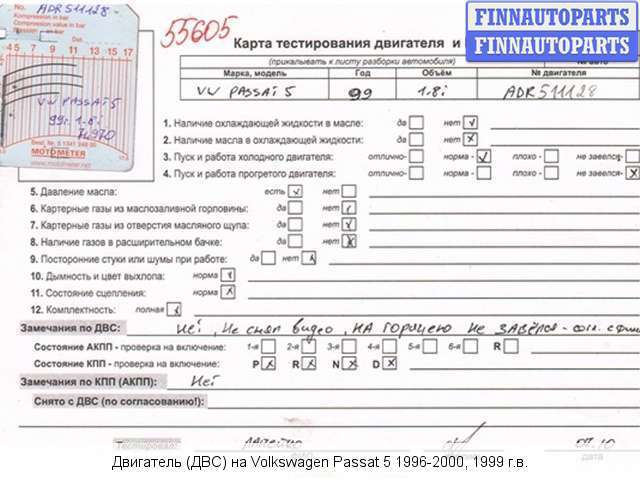 No. ADR 511128
Compression in bar
Compression value in bar
Pression en bar
Dat.
4 5 7 9 11 13 15 17
VW PASSAT 5
99г. 1.8i
Best. Nr. 5 1341 248 00
MOTOMETER
www.motometer.net
55605
FINNAUTOPARTS
FINNAUTOPARTS
Карта тестирования двигателя и
(прикалывать к листу разборки автомобиля)
Марка, модель Год Объём № двигателя
VW PASSAT 5 99 1.8i ADR 511128
1. Наличие охлаждающей жидкости в масле: да нет
2. Наличие масла в охлаждающей жидкости: да нет
3. Пуск и работа холодного двигателя: отлично- норма- плохо- не завелся-
4. Пуск и работа прогретого двигателя: отлично- норма- плохо- не завелся-
5. Давление масла: есть нет
6. Картерные газы из маслозаливной горловины: да нет
7. Картерные газы из отверстия масляного щупа: да нет
8. Наличие газов в расширительном бачке: да нет
9. Посторонние стуки или шумы при работе: да нет
10. Дымность и цвет выхлопа: норма
11. Состояние сцепления: норма
12. Комплектность: полная
Замечания по ДВС: Нет, Не снял видео, НА горячею Не завёлся -
Состояние АКПП - проверка на включение: 1-я 2-я 3-я 4-я 5-я 6-я R
Состояние КПП - проверка на включение: P R N D
Замечания по КПП (АКПП): Нет
Снято с ДВС (по согласованию!):
Тестировал: подпись дата
Двигатель (ДВС) на Volkswagen Passat 5 1996-2000, 1999 г.в.